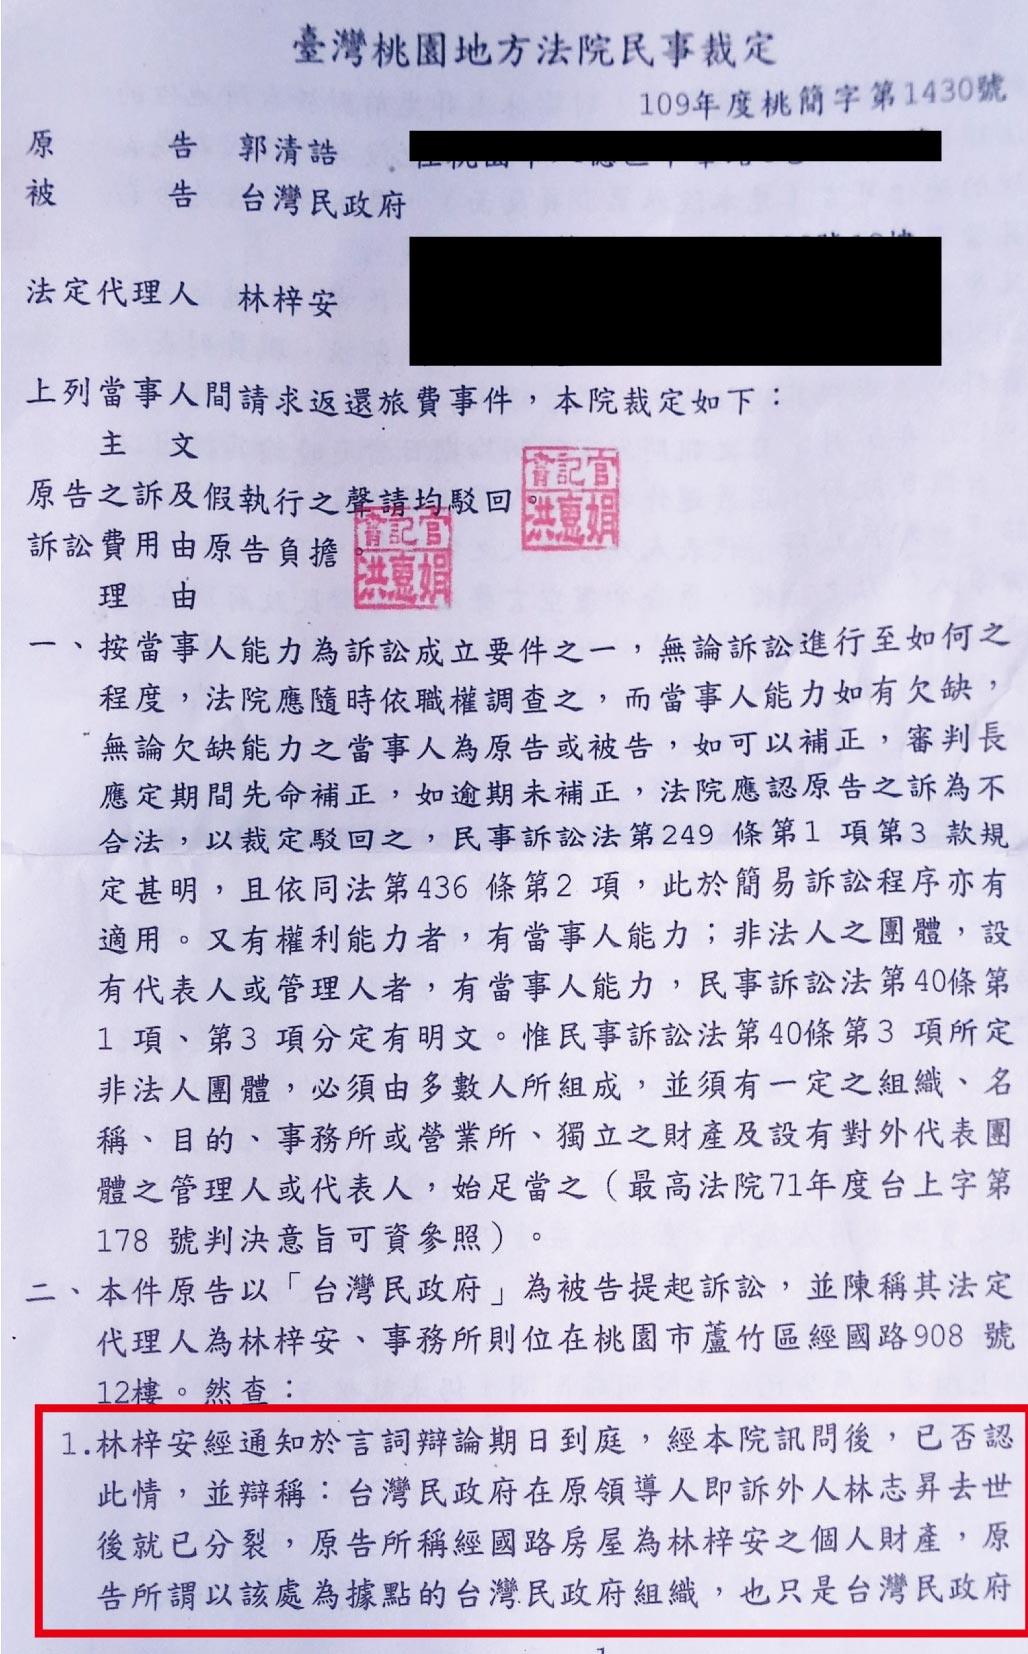 臺灣桃園地方法院民事裁定
109年度桃簡字第1430號
原 告 郭清誥
被 告 台灣民政府
法定代理人 林梓安
上列當事人間請求返還旅費事件，本院裁定如下：
主 文
原告之訴及假執行之聲請均駁回。
書記官
洪惠娟
訴訟費用由原告負擔。
書記官
洪惠娟
理 由
一、按當事人能力為訴訟成立要件之一，無論訴訟進行至如何之
程度，法院應隨時依職權調查之，而當事人能力如有欠缺，
無論欠缺能力之當事人為原告或被告，如可以補正，審判長
應定期間先命補正，如逾期未補正，法院應認原告之訴為不
合法，以裁定駁回之，民事訴訟法第249 條第1 項第3 款規
定甚明，且依同法第436 條第2 項，此於簡易訴訟程序亦有
適用。又有權利能力者，有當事人能力；非法人之團體，設
有代表人或管理人者，有當事人能力，民事訴訟法第40條第
1 項、第3 項分定有明文。惟民事訴訟法第40條第3 項所定
非法人團體，必須由多數人所組成，並須有一定之組織、名
稱、目的、事務所或營業所、獨立之財產及設有對外代表團
體之管理人或代表人，始足當之（最高法院71年度台上字第
178 號判決意旨可資參照）。
二、本件原告以「台灣民政府」為被告提起訴訟，並陳稱其法定
代理人為林梓安、事務所則位在桃園市蘆竹區經國路908 號
12樓。然查：
1.林梓安經通知於言詞辯論期日到庭，經本院訊問後，已否認
此情，並辯稱：台灣民政府在原領導人即訴外人林志昇去世
後就已分裂，原告所稱經國路房屋為林梓安之個人財產，原
告所謂以該處為據點的台灣民政府組織，也只是台灣民政府
1